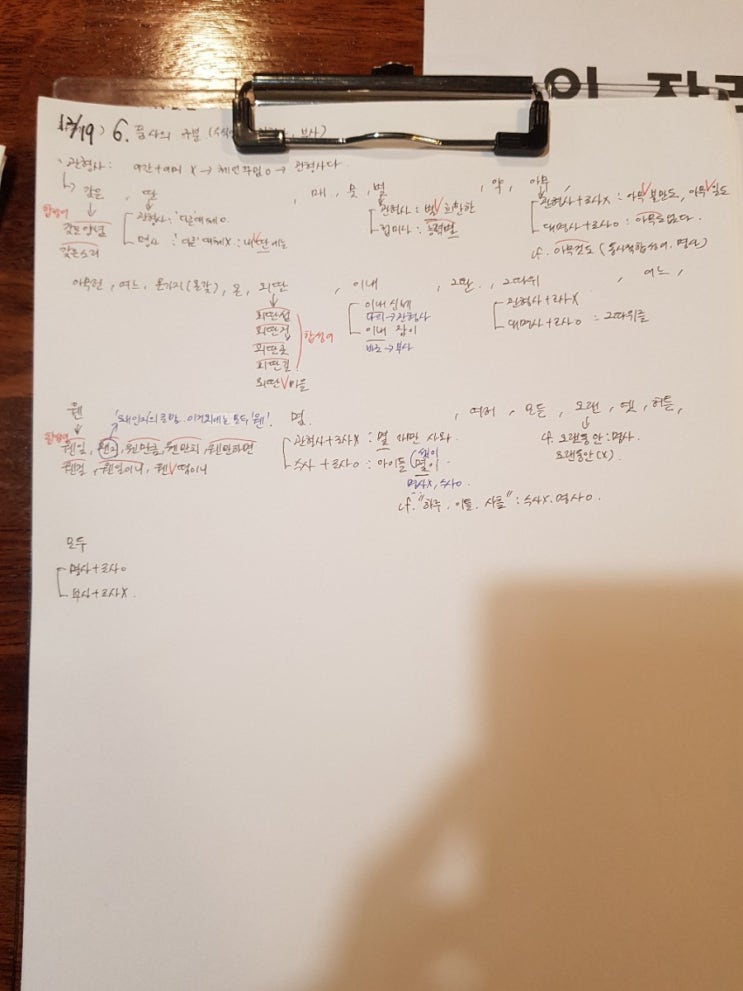 12/19) 6. 품사의 구별 (수식언 부사)
관형사 : 어간+어미 X → 체언수식 O → 관형사다.
갖은, 딴, 매, 뭇, 별, 약, 아무
합성어
갖은양념
갖은소리
관형사 : '다른'대체 O
명사 : '다른'대체 X : 내딴에는
관형사 : 별 희한한
접미사 : 능력별
관형사+조사X : 아무 볼만도, 아무 일도
대명사+조사O : 아무도 없다.
cf. 아무것도 (통시적합성어, 명사)
아무런, 여느, 온가지(온갖), 온, 외딴, 이내, 그딴, 그따위, 어느,
외딴섬
외딴집
외딴곳
외딴길
외딴 마을
합성어
이내 신세
관형사
이내 잠이
바로 → 부사
관형사+조사X
대명사+조사O : 그따위를
웬 몇, 여러, 모든, 오랜, 옛, 허튼,
'왜인지'의 준말. 이거외에는 모두 '웬'.
합성어
웬일, 왠지, 웬만큼, 웬만히, 웬만하면
웬걸, 웬일이니, 웬 떡이니
관형사+조사X : 몇 개만 사와.
수사+조사O : 아이들 몇이
셋이
명사X, 수사O.
cf. "하루, 이틀, 사흘" : 수사X. 명사O.
cf. 오랫동안 : 명사.
오랜동안(X).
모두
명사+조사O
부사+조사X.
인 자리